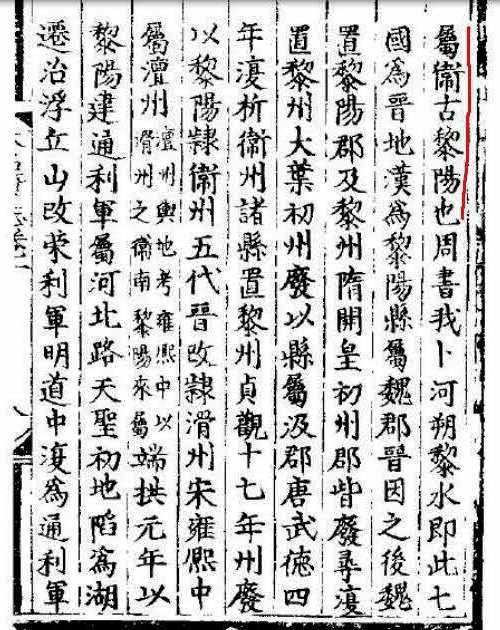 屬衛古黎陽也周書我卜河朔黎水即此七
國為晉地漢為黎陽縣屬魏郡晉因之後魏
置黎陽郡及黎州隋開皇初州郡皆廢尋復
置黎州大葉初州廢以縣屬汲郡唐武德四
年復析衛州諸縣置黎州貞觀十七年州廢
以黎陽隸衛州五代晉改隸滑州宋雍熙中
屬澶州澶州輿地考雍熙中以滑州之衛南黎陽來屬端拱元年以
黎陽建通利軍屬河北路天聖初地陷為湖
遷治浮丘山改荣利軍明道中復為通利軍